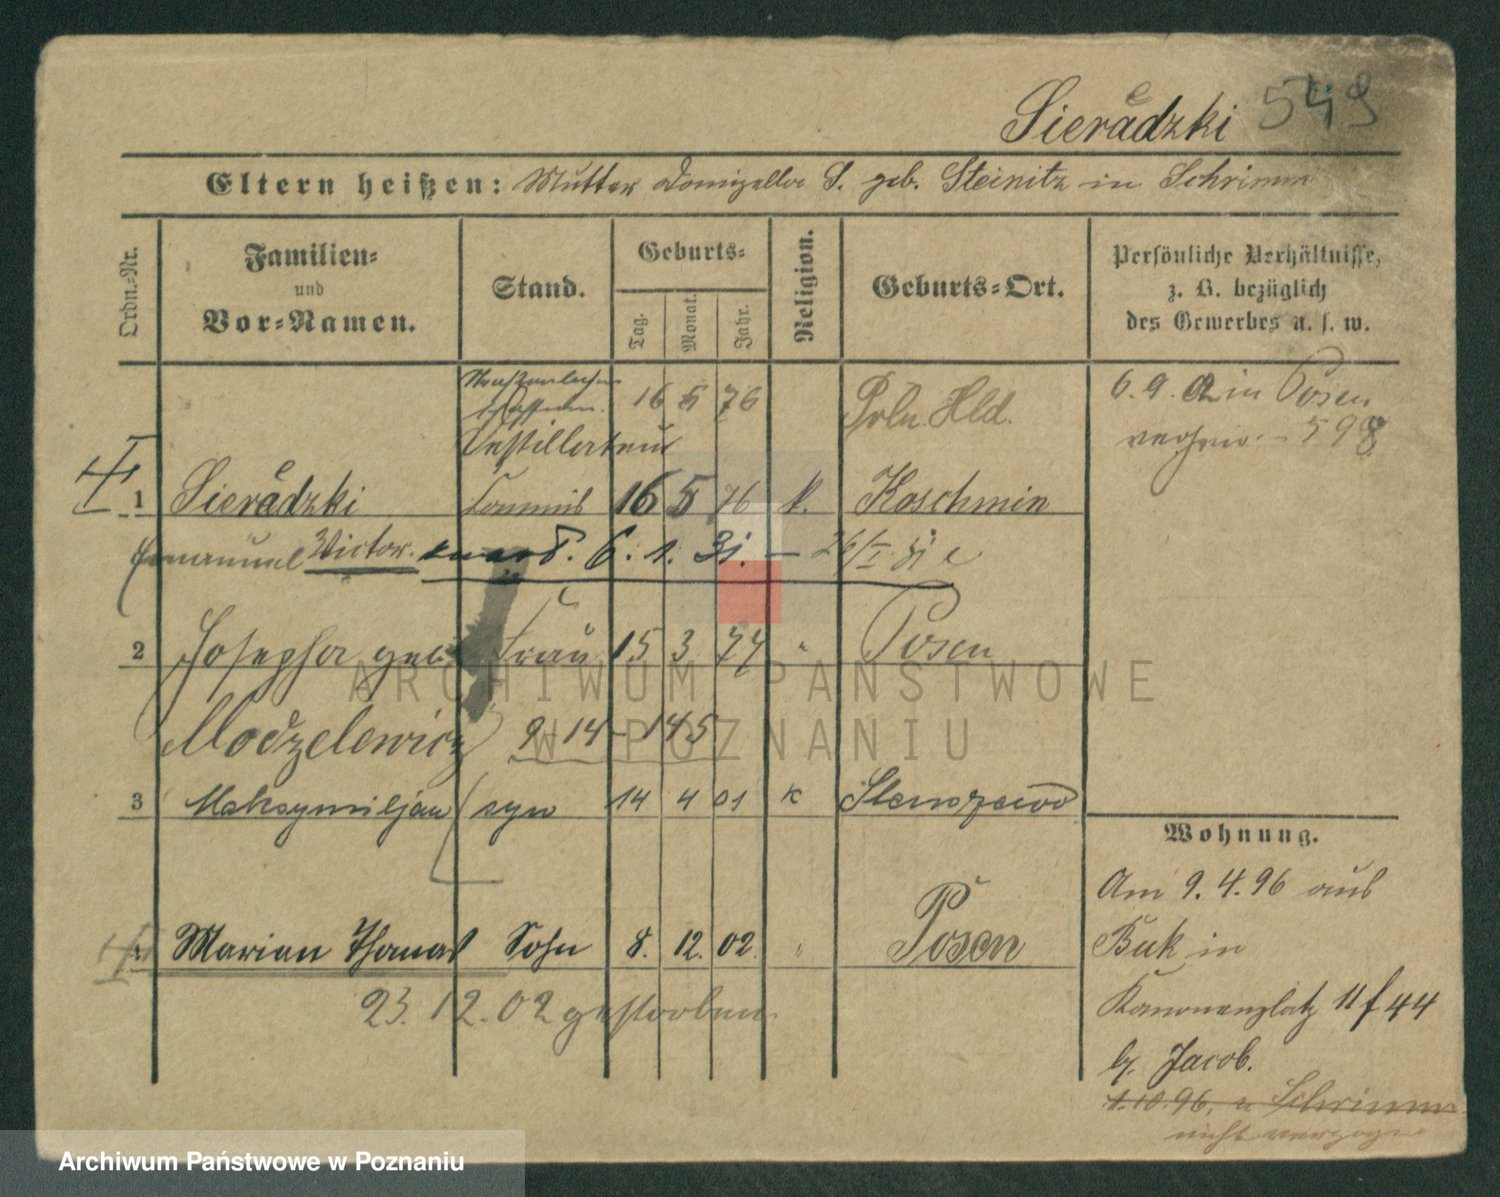 Sieradzki 549
Eltern heißen: Mutter Domizella S. geb. Steinitz in Schrimm
Ordn.-Nr.
Familien-
und
Vor-Namen.
Stand.
Geburts-
Tag.
Monat.
Jahr.
Religion.
Geburts-Ort.
Persönliche Verhältnisse,
z. B. bezüglich
des Gewerbes u. s. w.
16 5 76 Poln. Hld. 6. 9. in Posen
Destillateur 598
1 Sieradzki Commis 16 5 76 k. Koschmin
Emanuel Victor. 6. 1. 31. –
2 Josepha geb. Frau 15 3 77 " Posen
Modzelewicz 9 14 – 145
3 Maksymiljan syn 14 4 01 k Stenszewo
Wohnung.
Am 9. 4. 96 aus
Marian Thomas Sohn 8. 12. 02. " Posen
Buk in
23. 12. 02 gestorben
Kanonenplatz 11 f 44
b. Jacob.
1. 10. 96, n. Schrimm
nicht verzogen
ARCHIWUM PAŃSTWOWE
W POZNANIU
Archiwum Państwowe w Poznaniu